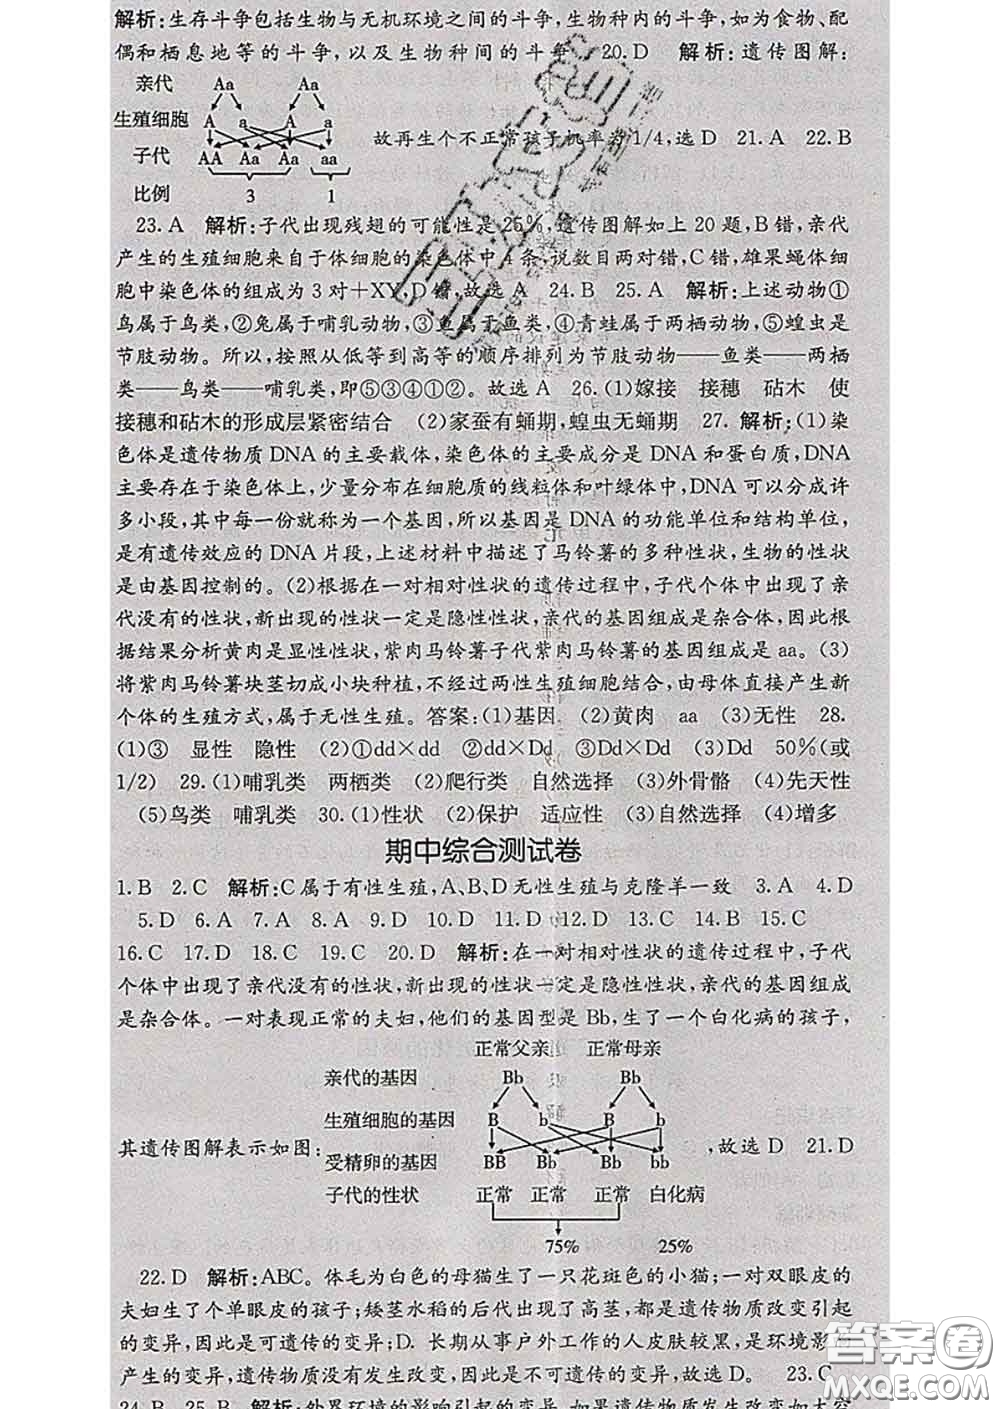 解析:生存斗争包括生物与无机环境之间的斗争,生物种内的斗争,如为食物、配
偶和栖息地等的斗争,以及生物种间的斗争 20.D 解析:遗传图解:
亲代 Aa Aa
生殖细胞 A a A a
故再生个不正常孩子机率为1/4,选D 21.A 22.B
子代 AA Aa Aa aa
比例 3 1
23.A 解析:子代出现残翅的可能性是25%,遗传图解如上20题,B错,亲代
产生的生殖细胞来自于体细胞的染色体中4条,说数目两对错,C错,雄果蝇体细
胞中染色体的组成为3对+XY,D错,故选A 24.B 25.A 解析:上述动物①
鸟属于鸟类,②兔属于哺乳动物,③鱼属于鱼类,④青蛙属于两栖动物,⑤蝗虫是
节肢动物。所以,按照从低等到高等的顺序排列为节肢动物——鱼类——两栖
类——鸟类——哺乳类,即⑤③④①②。故选A 26.(1)嫁接 接穗 砧木 使
接穗和砧木的形成层紧密结合 (2)家蚕有蛹期,蝗虫无蛹期 27.解析:(1)染
色体是遗传物质DNA的主要载体,染色体的主要成分是DNA和蛋白质,DNA
主要存在于染色体上,少量分布在细胞质的线粒体和叶绿体中,DNA可以分成许
多小段,其中每一份就称为一个基因,所以基因是DNA的功能单位和结构单位,
是有遗传效应的DNA片段,上述材料中描述了马铃薯的多种性状,生物的性状
是由基因控制的。(2)根据在一对相对性状的遗传过程中,子代个体中出现了亲
代没有的性状,新出现的性状一定是隐性性状,亲代的基因组成是杂合体,因此根
据结果分析黄肉是显性性状,紫肉马铃薯子代紫肉马铃薯的基因组成是aa。(3)
将紫肉马铃薯块茎切成小块种植,不经过两性生殖细胞结合,由母体直接产生新
个体的生殖方式,属于无性生殖。答案:(1)基因. (2)黄肉 aa (3)无性 28.
(1)③ 显性 隐性 (2)①dd×dd ②dd×Dd ③Dd×Dd (3)Dd 50%(或
1/2) 29.(1)哺乳类 两栖类 (2)爬行类 自然选择 (3)外骨骼 (4)先天性
(5)鸟类 哺乳类 30.(1)性状 (2)保护 适应性 (3)自然选择 (4)增多
期中综合测试卷
1.B 2.C 解析:C属于有性生殖,A、B、D无性生殖与克隆羊一致 3.A 4.D
5.D 6.A 7.A 8.A 9.D 10.D 11.D 12.D 13.C 14.B 15.C
16.C 17.D 18.C 19.C 20.D 解析:在一对相对性状的遗传过程中,子代
个体中出现了亲代没有的性状,新出现的性状一定是隐性性状,亲代的基因组成
是杂合体。一对表现正常的夫妇,他们的基因型是Bb,生了一个白化病的孩子,
正常父亲 正常母亲
亲代的基因 Bb Bb
生殖细胞的基因 B b B b
其遗传图解表示如图: ,故选D 21.D
受精卵的基因 BB Bb Bb bb
子代的性状 正常 正常 正常 白化病
75% 25%
22.D 解析:ABC。体毛为白色的母猫生了一只花斑色的小猫;一对双眼皮的
夫妇生了个单眼皮的孩子;矮茎水稻的后代出现了高茎,都是遗传物质改变引起
的变异,因此是可遗传的变异;D. 长期从事户外工作的人皮肤较黑,是环境影响
产生的变异,遗传物质没有发生改变,因此是不可遗传的变异,故选D。 23.C
24.B 25.B 解析:外界环境的影响引起的变异,如果遗传物质发生改变如太空
答案圈
MXQE.COM